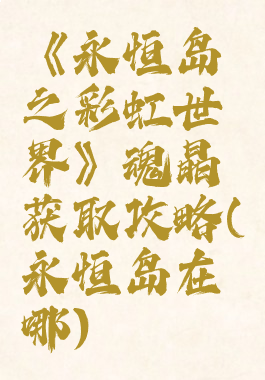 《永恒岛
之彩虹世
界》魂晶
获取攻略(
永恒岛在
哪)